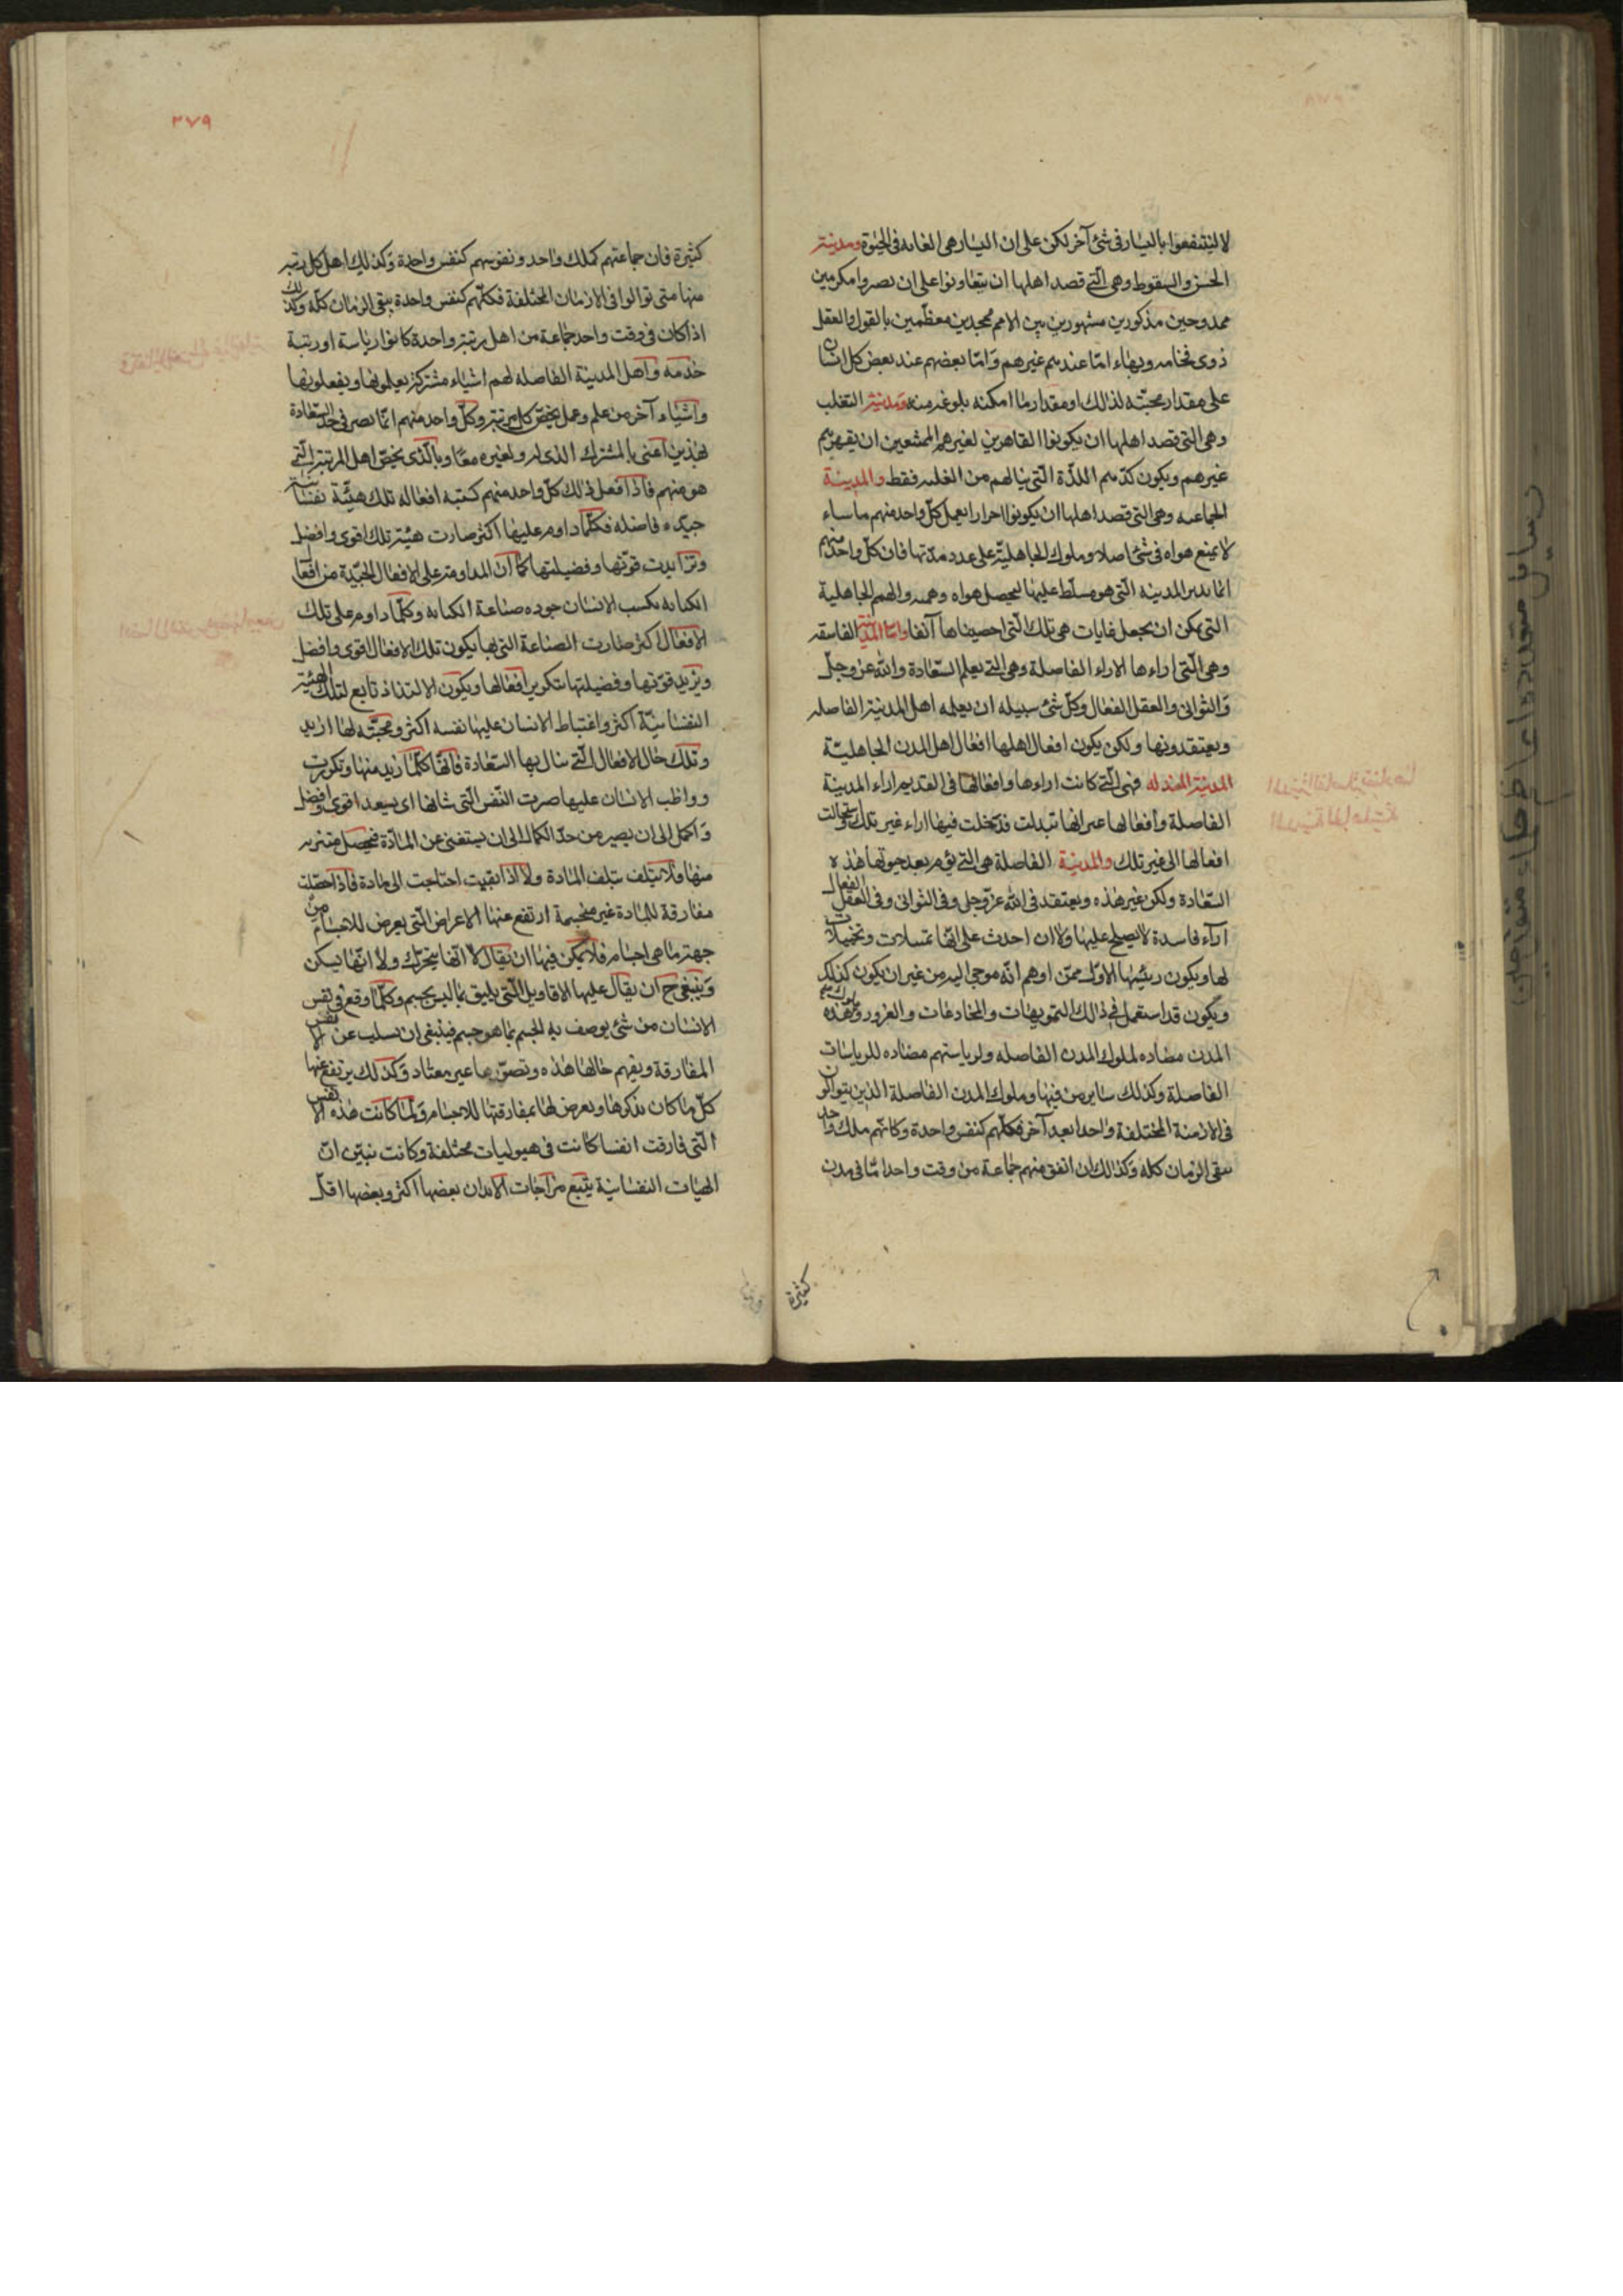 لا لينتفعوا باليسار فى شئ آخر لكن على ان اليسار هى الغايه فى الحيوة ومدينة
الخسّ والسقوط وهى الّتى قصد اهلها ان يتعاونوا على ان يصروا مكرمين
ممدوحين مذكورين مشهورين بين الامم ممجدين معظّمين بالقول والفعل
ذوى فخامه وبهاء امّا عند غيرهم وامّا بعضهم عند بعض كل انسان
على مقدار محبّته لذالك او مقدار ما امكنه بلوغه منه ومدينة التغلب
وهى التى قصد اهلها ان يكونوا القاهرين لغيرهم الممتنعين ان يقهرهم
غيرهم ويكون كدّهم اللذّة الّتى ينالهم من الغلبه فقط والمدينة
الجماعيه وهى التى قصد اهلها ان يكونوا احرارا يعمل كلّ واحد منهم ما شاء
لا يمنع هواه فى شئ اصلا وملوك الجاهليّة على عدد مدنها فان كلّ واحد منهم
انما يدبر المدينه الّتى هو مسلّط عليها ليحصل هواه وهممه والهمم الجاهلية
التى يمكن ان يجعل غايات هى تلك الّتى احصيناها آنفا واما المدينة الفاسقه
وهى الّتى اراءها الاراء الفاضلة وهى التى يعلم السّعادة والله عزّ وجلّ
والثوانى والعقل الفعّال وكلّ شئ سبيله ان يعلمه اهل المدينة الفاضله
ويعتقدونها ولكن يكون افعال اهلها افعال اهل المدن الجاهليّة
المدينة المبدله فهى الّتى كانت اراءها وافعالها فى القديم اراء المدينة
الفاضلة وأفعالها غير انها تبدلت فدخلت فيها اراء غير تلك واستحالت
افعالها الى غير تلك والمدينة الفاضلة هى التى يؤم بعد حيوتها هذه
السّعادة ولكن غير هذه ويعتقد فى الله عزّ وجل وفى الثوانى وفى العقل الفعال
آراء فاسدة لا يصلح عليها ولا ان اخذت على انّها تمثيلات وتخيلات
لها ويكون رئيسها الاوّل ممّن اوهم انّه موحى اليه من غير ان يكون كذلك
ويكون قد استعمل فى ذالك التمويهات والمخادعات والغرور وملوك هذه
المدن مضاده لملوك المدن الفاضله ولرياستهم مضاده للرياسات
الفاضلة وكذلك ساير من فيها وملوك المدن الفاضلة الذين يتوالون
فى الازمنة المختلفة واحدا بعد آخر فكلّهم كنفس واحدة وكانّهم ملك واحد
يبقى الزمان كله وكذالك ان اتفق منهم جماعة من وقت واحد امّا فى مدن
كثيرة
٣٧٩
كثيرة فان جماعتهم كملك واحد ونفوسهم كنفس واحدة وكذلك اهل كل رتبه
منها متى توالوا فى الازمان المختلفة فكلّهم كنفس واحدة يبقى الزمان كلّه وكذلك
اذا كان فى وقت واحد جماعة من اهل رتبة واحدة كانوا رياسة او رتبة
خدمه واهل المدينة الفاضله لهم اشياء مشتركة يعلمونها ويفعلونها
واشياء آخر من علم وعمل يخصّ كل رتبة وكلّ واحد منهم انّما يصر فى حد السّعادة
بهذين اعنى بالمشترك الذى له ولغيره معا وبالّذى يخصّ اهل المرتبة الّتى
هو منهم فاذا فعل ذالك كلّ واحد منهم كسبه افعاله تلك هيئة نفسانية
جيّده فاضله فكلّما داوم عليها اكثر صارت هيئته تلك اقوى وافضل
وتزايدت قوّتها وفضيلتها كما أن المداومة على الافعال الجيّدة من افعال
الكتابه يكسب الانسان جوده صناعة الكتابه وكلّما داوم على تلك
الافعال اكثر صارت الصناعة التى بها يكون تلك الافعال اقوى وافضل
ويزيد قوّتها وفضيلتها بتكرير افعالها ويكون الالتذاذ تابع لتلك الهيئة
النفسانيّة اكثر واغتباط الانسان عليها نفسه اكثر ومحبّته لها ازيد
وتلك حال الافعال الّتى ينال بها السّعادة فانّها كلّما زيد منها وتكررت
وواظب الانسان عليها صيرت النّفس الّتى شانها ان يسعد اقوى وافضل
واكمل الى ان يصير من حدّ الكمال الى ان يستغنى عن المادّة فيحصل متبريه
منها فلا يتلف بتلف المادة ولا اذا بقيت احتاجت الى مادة فاذا حصلت
مفارقة للمادة غير متجسمة ارتفع عنها الاعراض الّتى يعرض للاجسام من
جهة ما هى اجسام فلا يمكن فيها ان يقال لا انّها يتحرّك ولا انّها يسكن
وينبغى ح ان يقال عليها الاقاويل الّتى يليق بما ليس بجسم وكلّما وقع فى نفس
الانسان من شئ يوصف به الجسم بما هو جسم فينبغى ان يسلب عن الانفس
المفارقة ويفهم حالها هذه وتصوّرها عير معتاد وكذلك يرتفع عنها
كلّ ما كان يذكرها ويعرض لها بمفارقتها للاجسام ولما كانت هذه الانفس
الّتى فارقت انفسا كانت فى هيوليات مختلفة وكانت تبيّن انّ
الهيات النفسانية يتبع مزاجات الابدان بعضها اكثر وبعضها اقلّ
رسايل متعدده از حكماء متفاوت